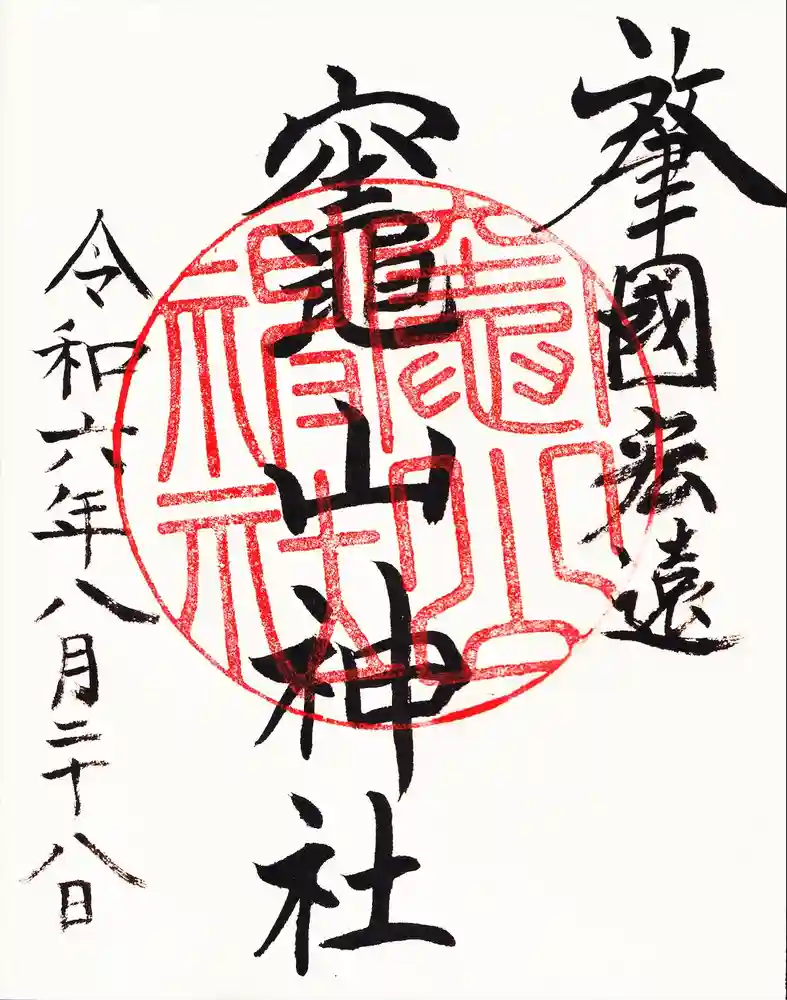 肇國宏遠
竈山神社
令和六年八月二十八日